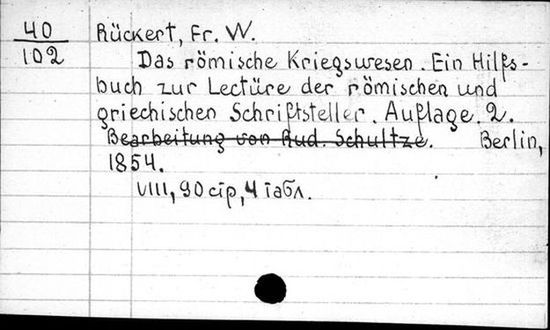 40 Rückert, Fr. W.
102 Das römische Kriegswesen. Ein Hilfs-
buch zur Lectüre der römischen und
griechischen Schriftsteller. Auflage. 2.
Bearbeitung von Rud. Schultze. Berlin,
1854.
VIII, 90 стр, 4 табл.